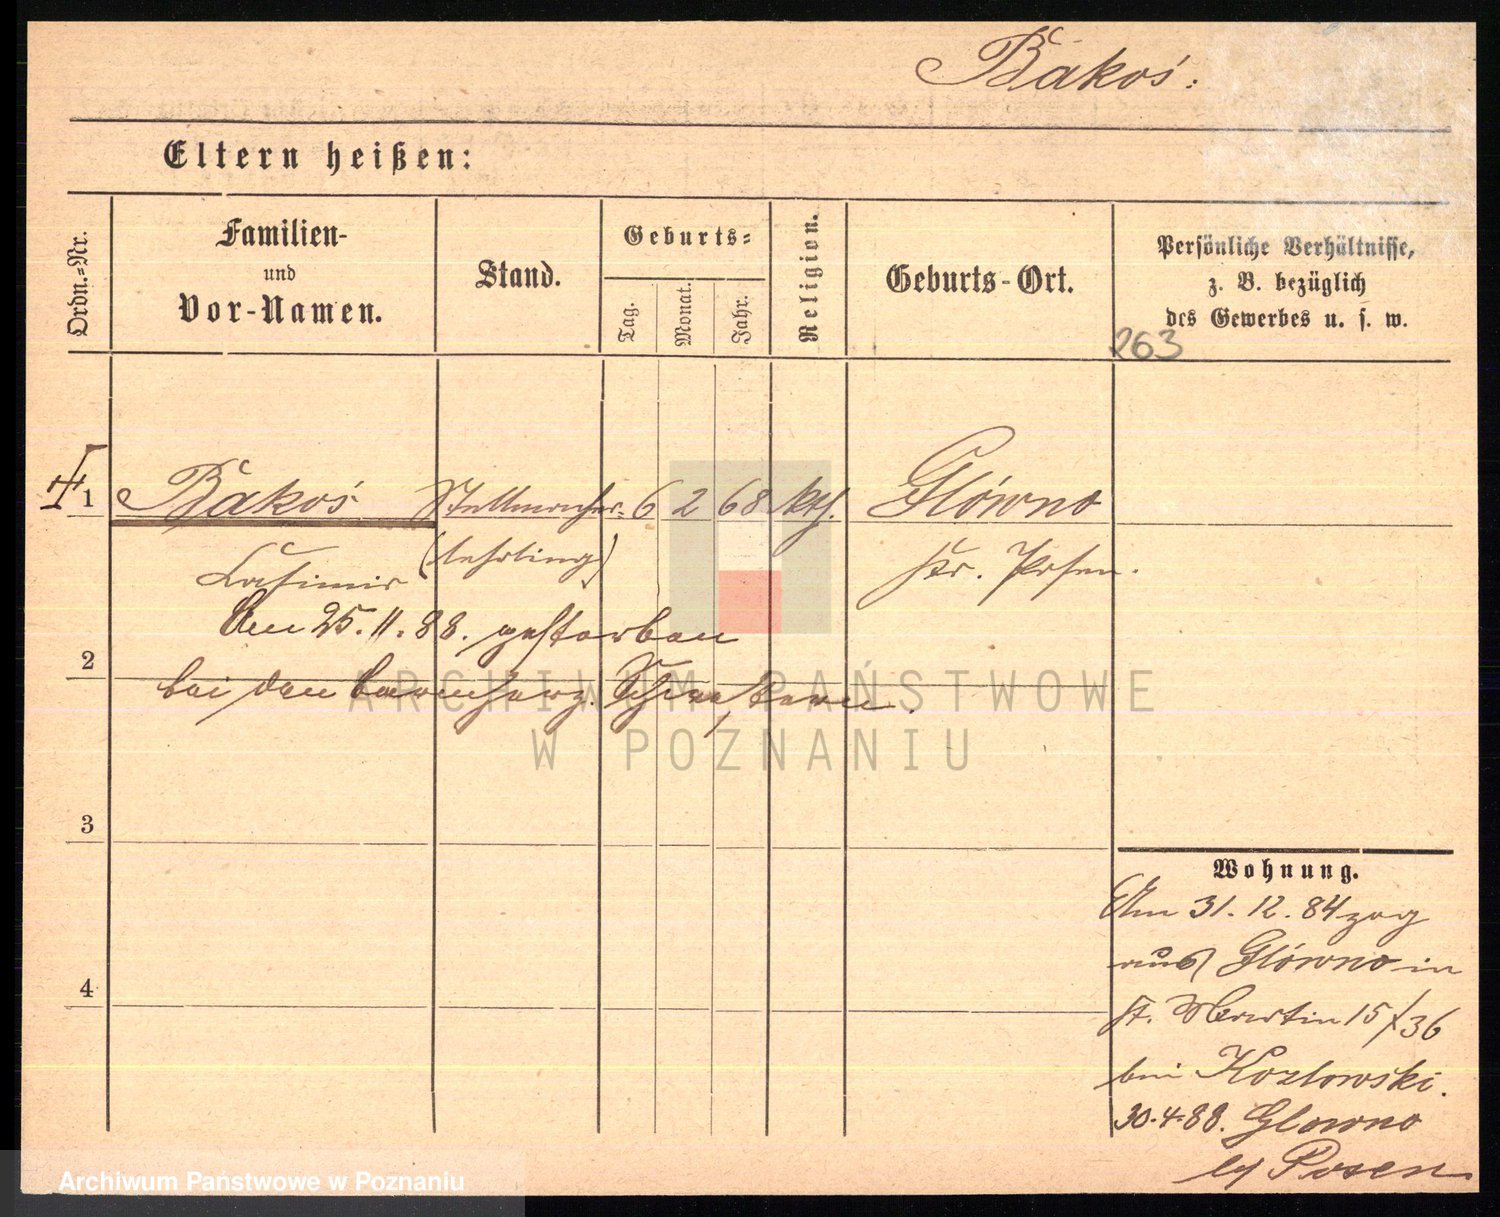 Bąkoś.
Eltern heißen:
Ordn.-Nr.
Familien-
und
Vor-Namen.
Stand.
Geburts-
Tag.
Monat.
Jahr.
Religion.
Geburts-Ort.
Persönliche Verhältnisse,
z. B. bezüglich
des Gewerbes u. s. w.
263
1 Bąkoś Stellmacher- 6 2 68 kth. Główno
Casimir (lehrling) Kr. Posen.
Am 25.11.88. gestorben
2
bei den barmherz. Schwestern.
ARCHIWUM PAŃSTWOWE
W POZNANIU
3
4
Wohnung.
Am 31.12.84 zog
aus Główno in
St. Martin 15/36
bei Kozlowski.
30.4.88. Glowno
b/ Posen
Archiwum Państwowe w Poznaniu